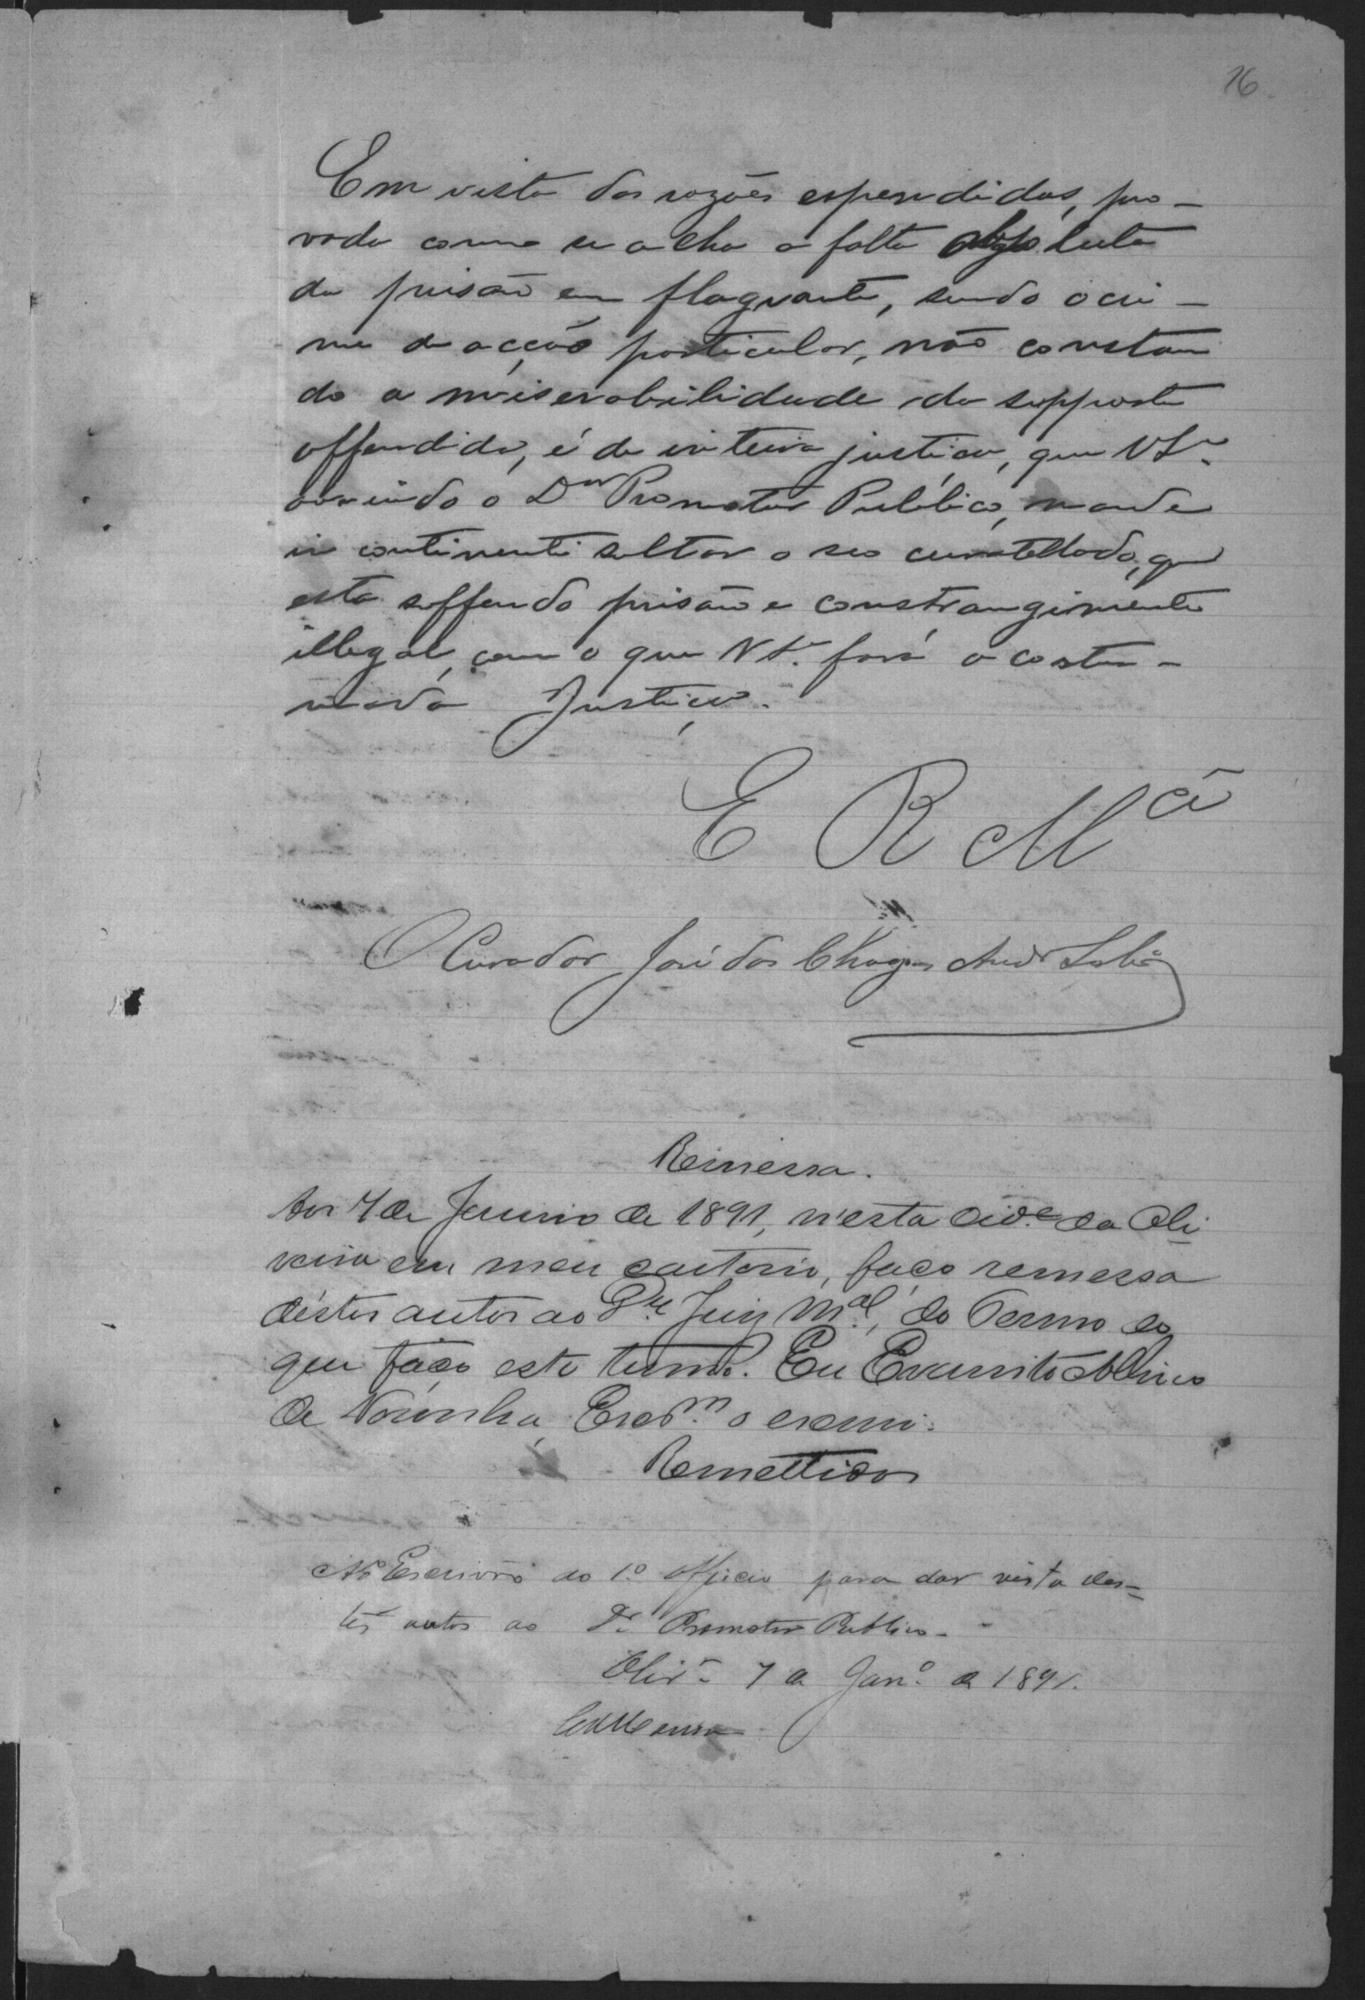 16
Em vista das razões espendidas, pro-
vada como se acha a falta absoluta
da prisão em flagrante, sendo o cri-
me de acção particular, não constan
do a miserabilidade da supposta
offendida, é de inteira justiça, que VSª
ouvindo o Dor Promotor Publico, mande
in continenti soltar o seo curatellado, que
está soffrendo prisão e constrangimento
illegal, com o que VSª fará a costu-
mada Justiça.
E R Mcê
O Curador José das Chagas Andr
Remessa.
Aos 7 de Janeiro de 1891, n'esta cide da Oli
veira em meu cartorio, faço remessa
déstes autos ao Dr Juiz Mal, do Termo do
que faço este termo. Eu Evaristo
de Noronha, Escm o escrevi.
Remettidos
Ao Escrivão do 1º officio para dar vista des-
tes autos ao Dr Promotor Publico.
Olivª 7 de Janº de 1891.